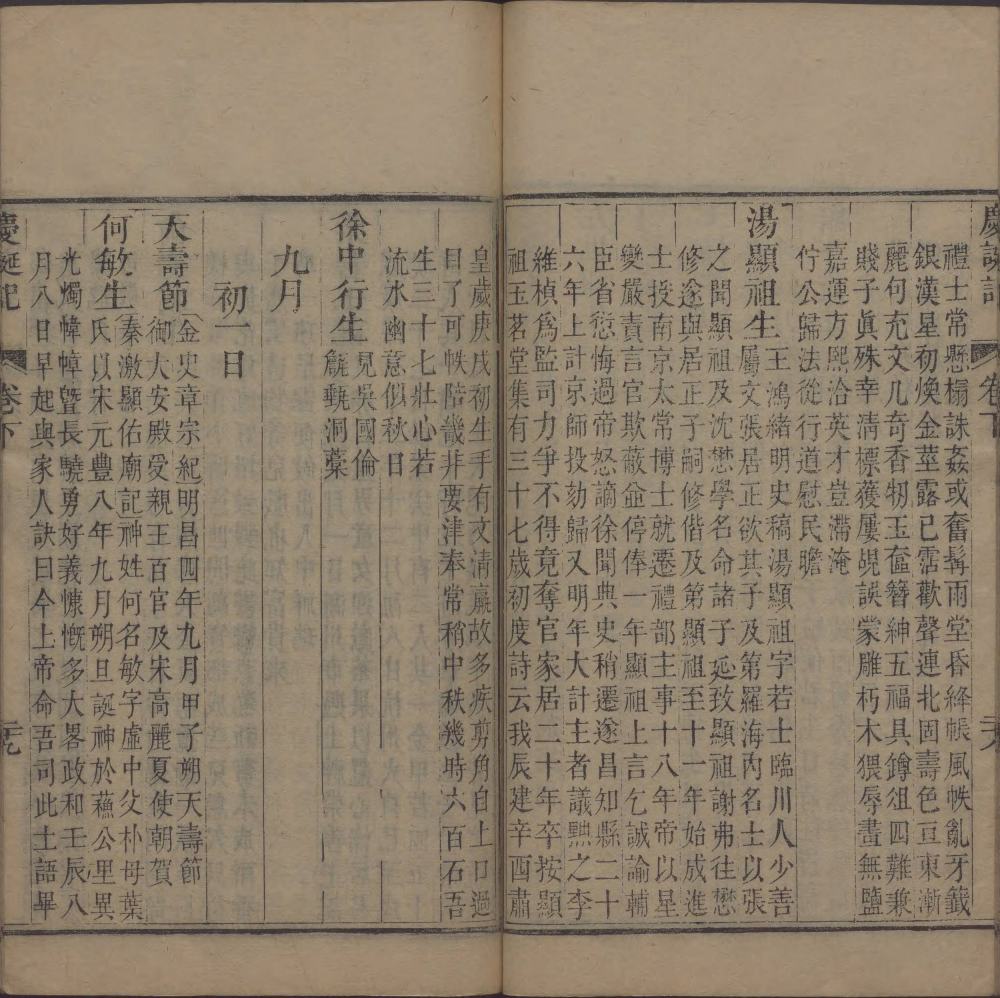 慶誕記
卷下
禮士常懸榻誅姦或奮髯雨堂昏絳帳風帙亂牙籤
銀漢星初煥金莖露已霑歡聲連北固壽色亘東漸
麗句充文几奇香牣玉奩簪紳五福具鐏俎四難兼
賤子眞殊幸淸標獲屢覘誤蒙雕朽木猥辱畫無鹽
嘉運方熙洽英才豈滯淹
佇公歸法從行道慰民瞻
湯顯祖生 王鴻緒明史稿湯顯祖字若士臨川人少善
屬文張居正欲其子及第羅海內名士以張
之聞顯祖及沈懋學名命諸子延致顯祖謝弗往懋
修遂與居正子嗣修偕及第顯祖至十一年始成進
士授南京太常博士就遷禮部主事十八年帝以星
變嚴責言官欺蔽並停俸一年顯祖上言乞誠諭輔
臣省愆悔過帝怒謫徐聞典史稍遷遂昌知縣二十
六年上計京師投劾歸又明年大計主者議黜之李
維楨爲監司力爭不得竟奪官家居二十年卒按顯
祖玉茗堂集有三十七歲初度詩云我辰建辛酉肅
皇歲庚戌初生手有文淸羸故多疾剪角自上口過
目了可帙陪畿非要津奉常稍中秩幾時六百石吾
生三十七壯心若
流水幽意似秋日
徐中行生 見吳國倫
甔甀洞藁
九月
初一日
天壽節 金史章宗紀明昌四年九月甲子朔天壽節
御大安殿受親王百官及宋高麗夏使朝賀
何敏生 秦激顯佑廟記神姓何名敏字虛中父朴母葉
氏以宋元豐八年九月朔旦誕神於蘓公里異
光燭幃幛曁長驍勇好義慷慨多大畧政和壬辰八
月八日早起與家人訣曰今上帝命吾司此土語畢
慶誕記
卷下